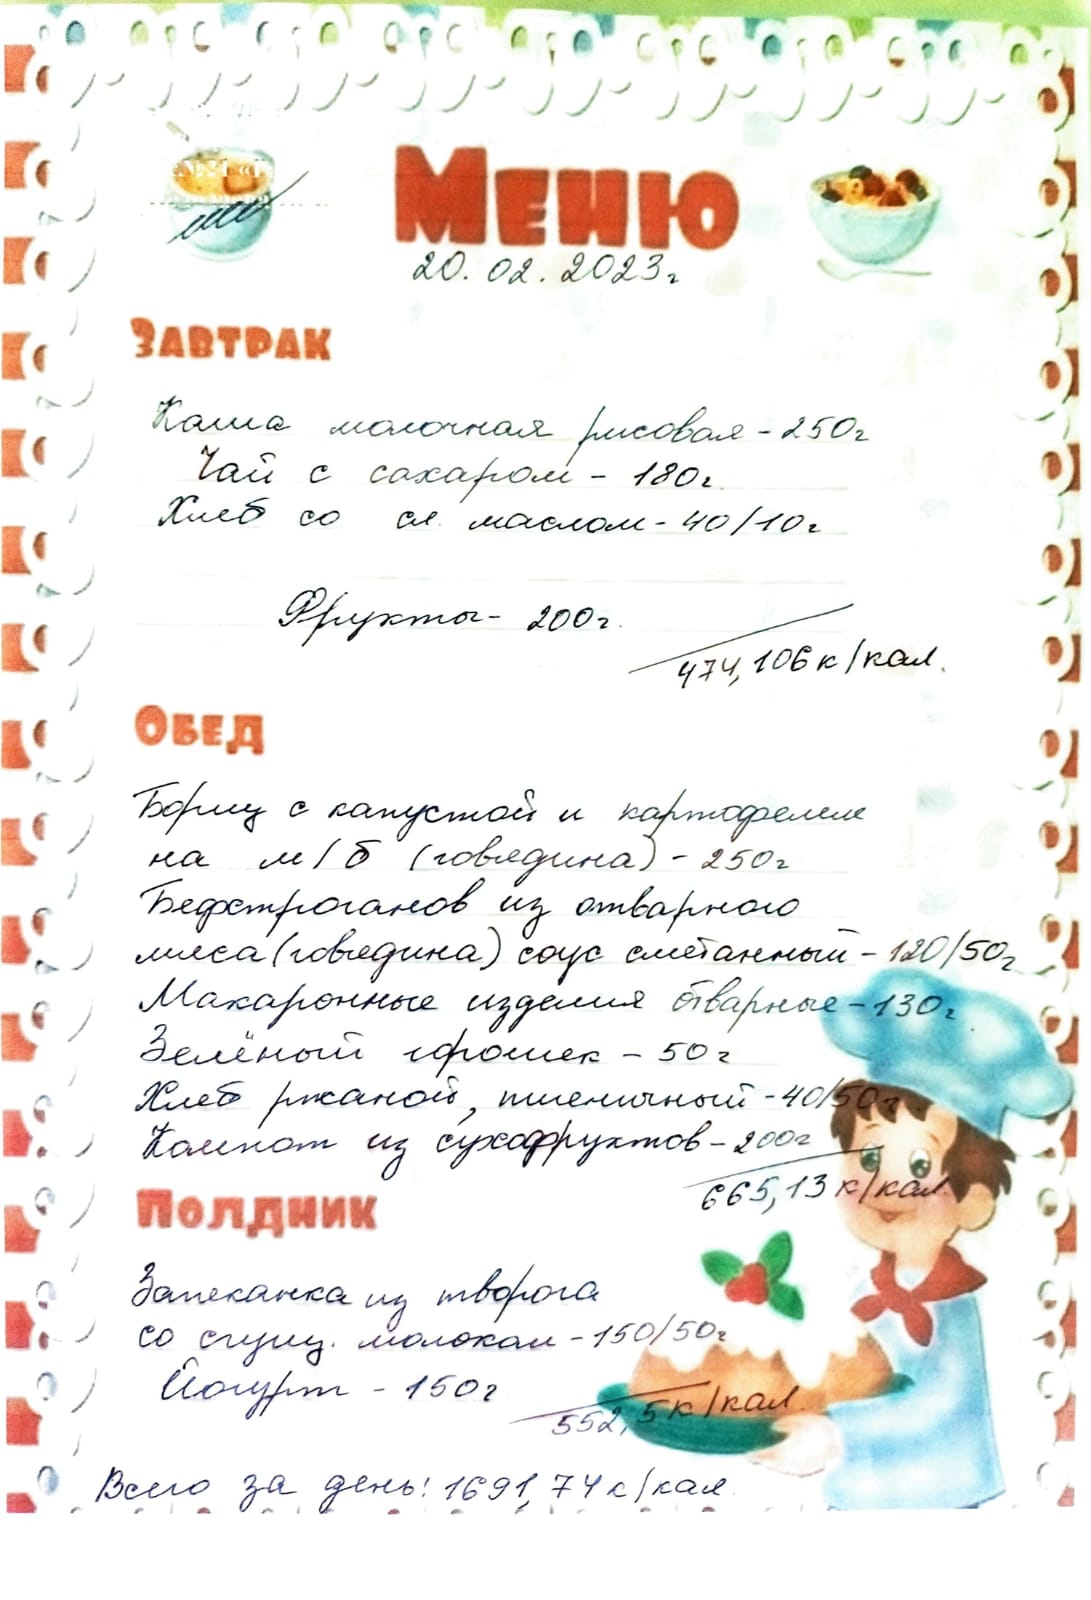 Меню
20.02.2023г
Завтрак
Каша молочная рисовая - 250г
Чай с сахаром - 180г.
Хлеб со сл. маслом - 40/10г
Фрукты - 200г.
474,106 к/кал.
Обед
Борщ с капустой и картофелем
на м/б (говядина) - 250г
Бефстроганов из отварного
мяса (говядина) соус сметанный - 120/50г
Макаронные изделия отварные - 130г.
Зелёный горошек - 50г
Хлеб ржаной, пшеничный - 40/50г
Компот из сухофруктов - 200г
665,13 к/кал.
Полдник
Запеканка из творога
со сгущ. молоком - 150/50г
Йогурт - 150г
552,5 к/кал.
Всего за день: 1691,74 к/кал.